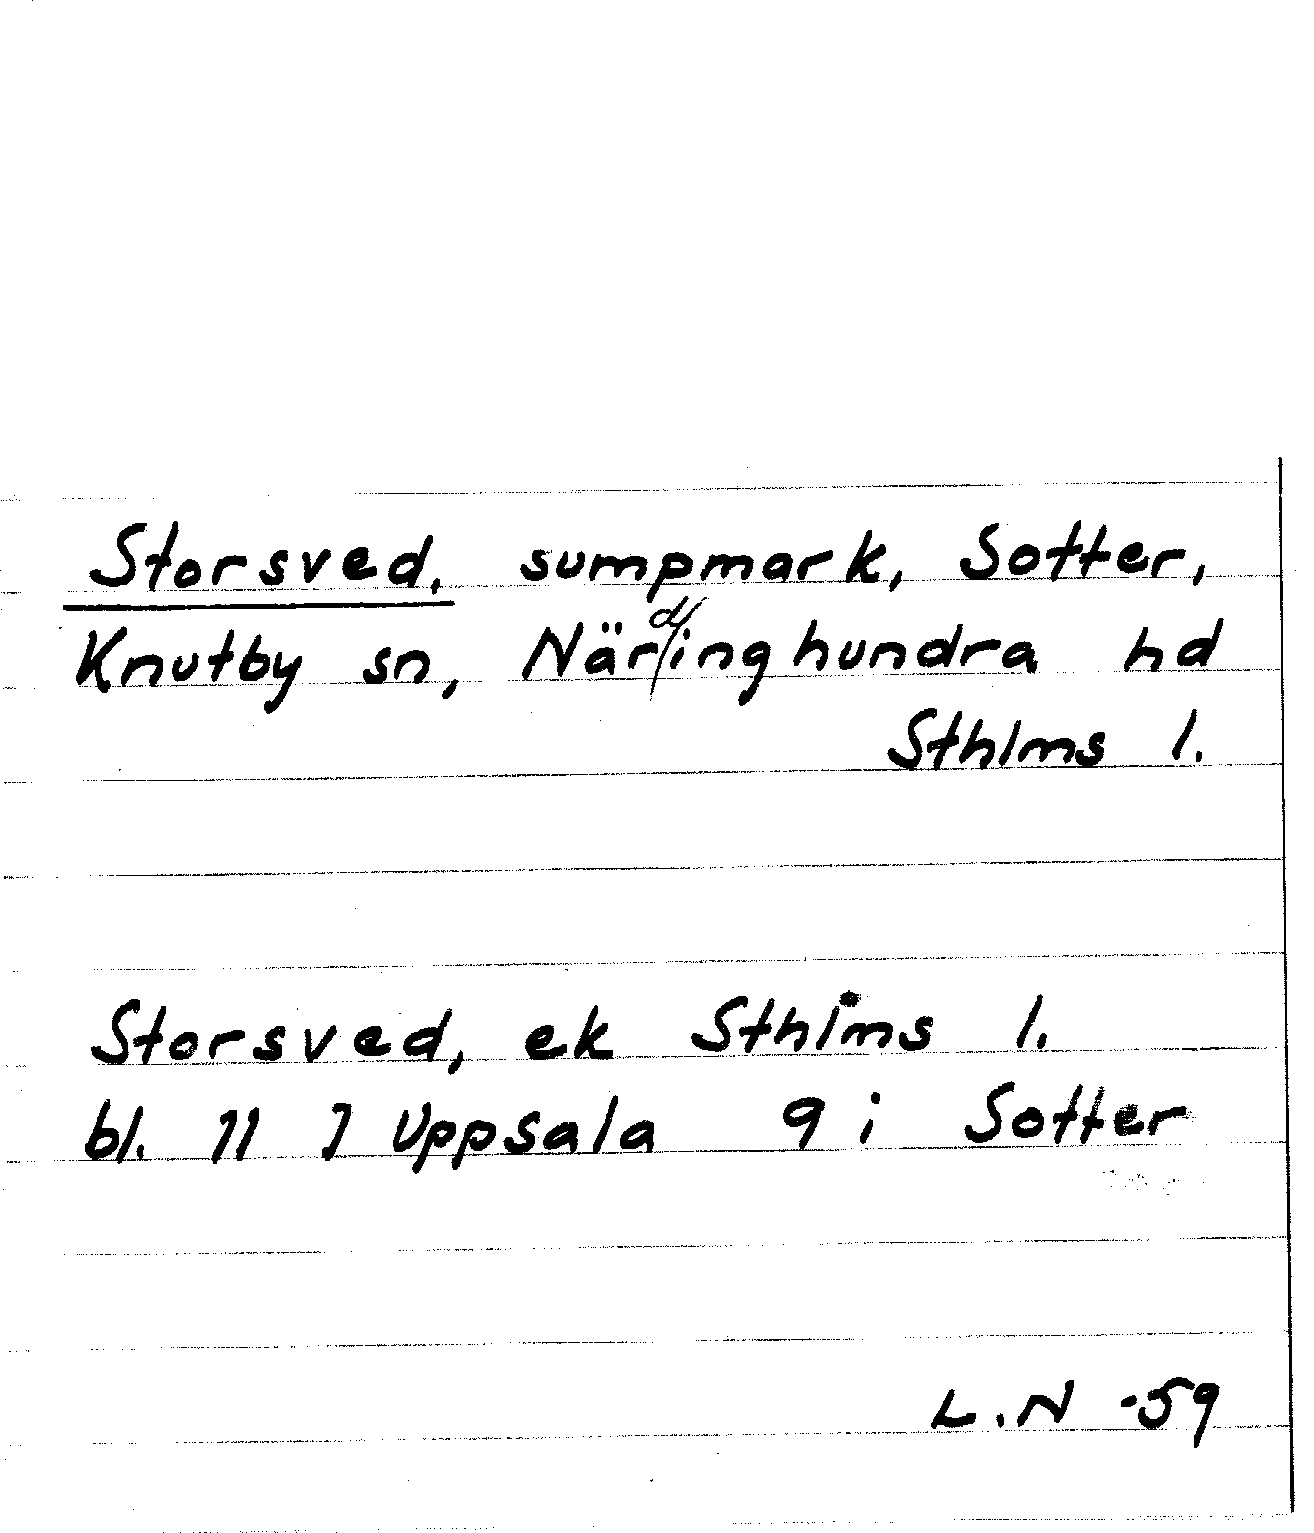 Storsved, sumpmark, Sotter,
Knutby sn, Närdinghundra hd
Sthlms l.
Storsved, ek Sthlms l.
bl. 71 7 Uppsala 9 i Sotter
L.N -59